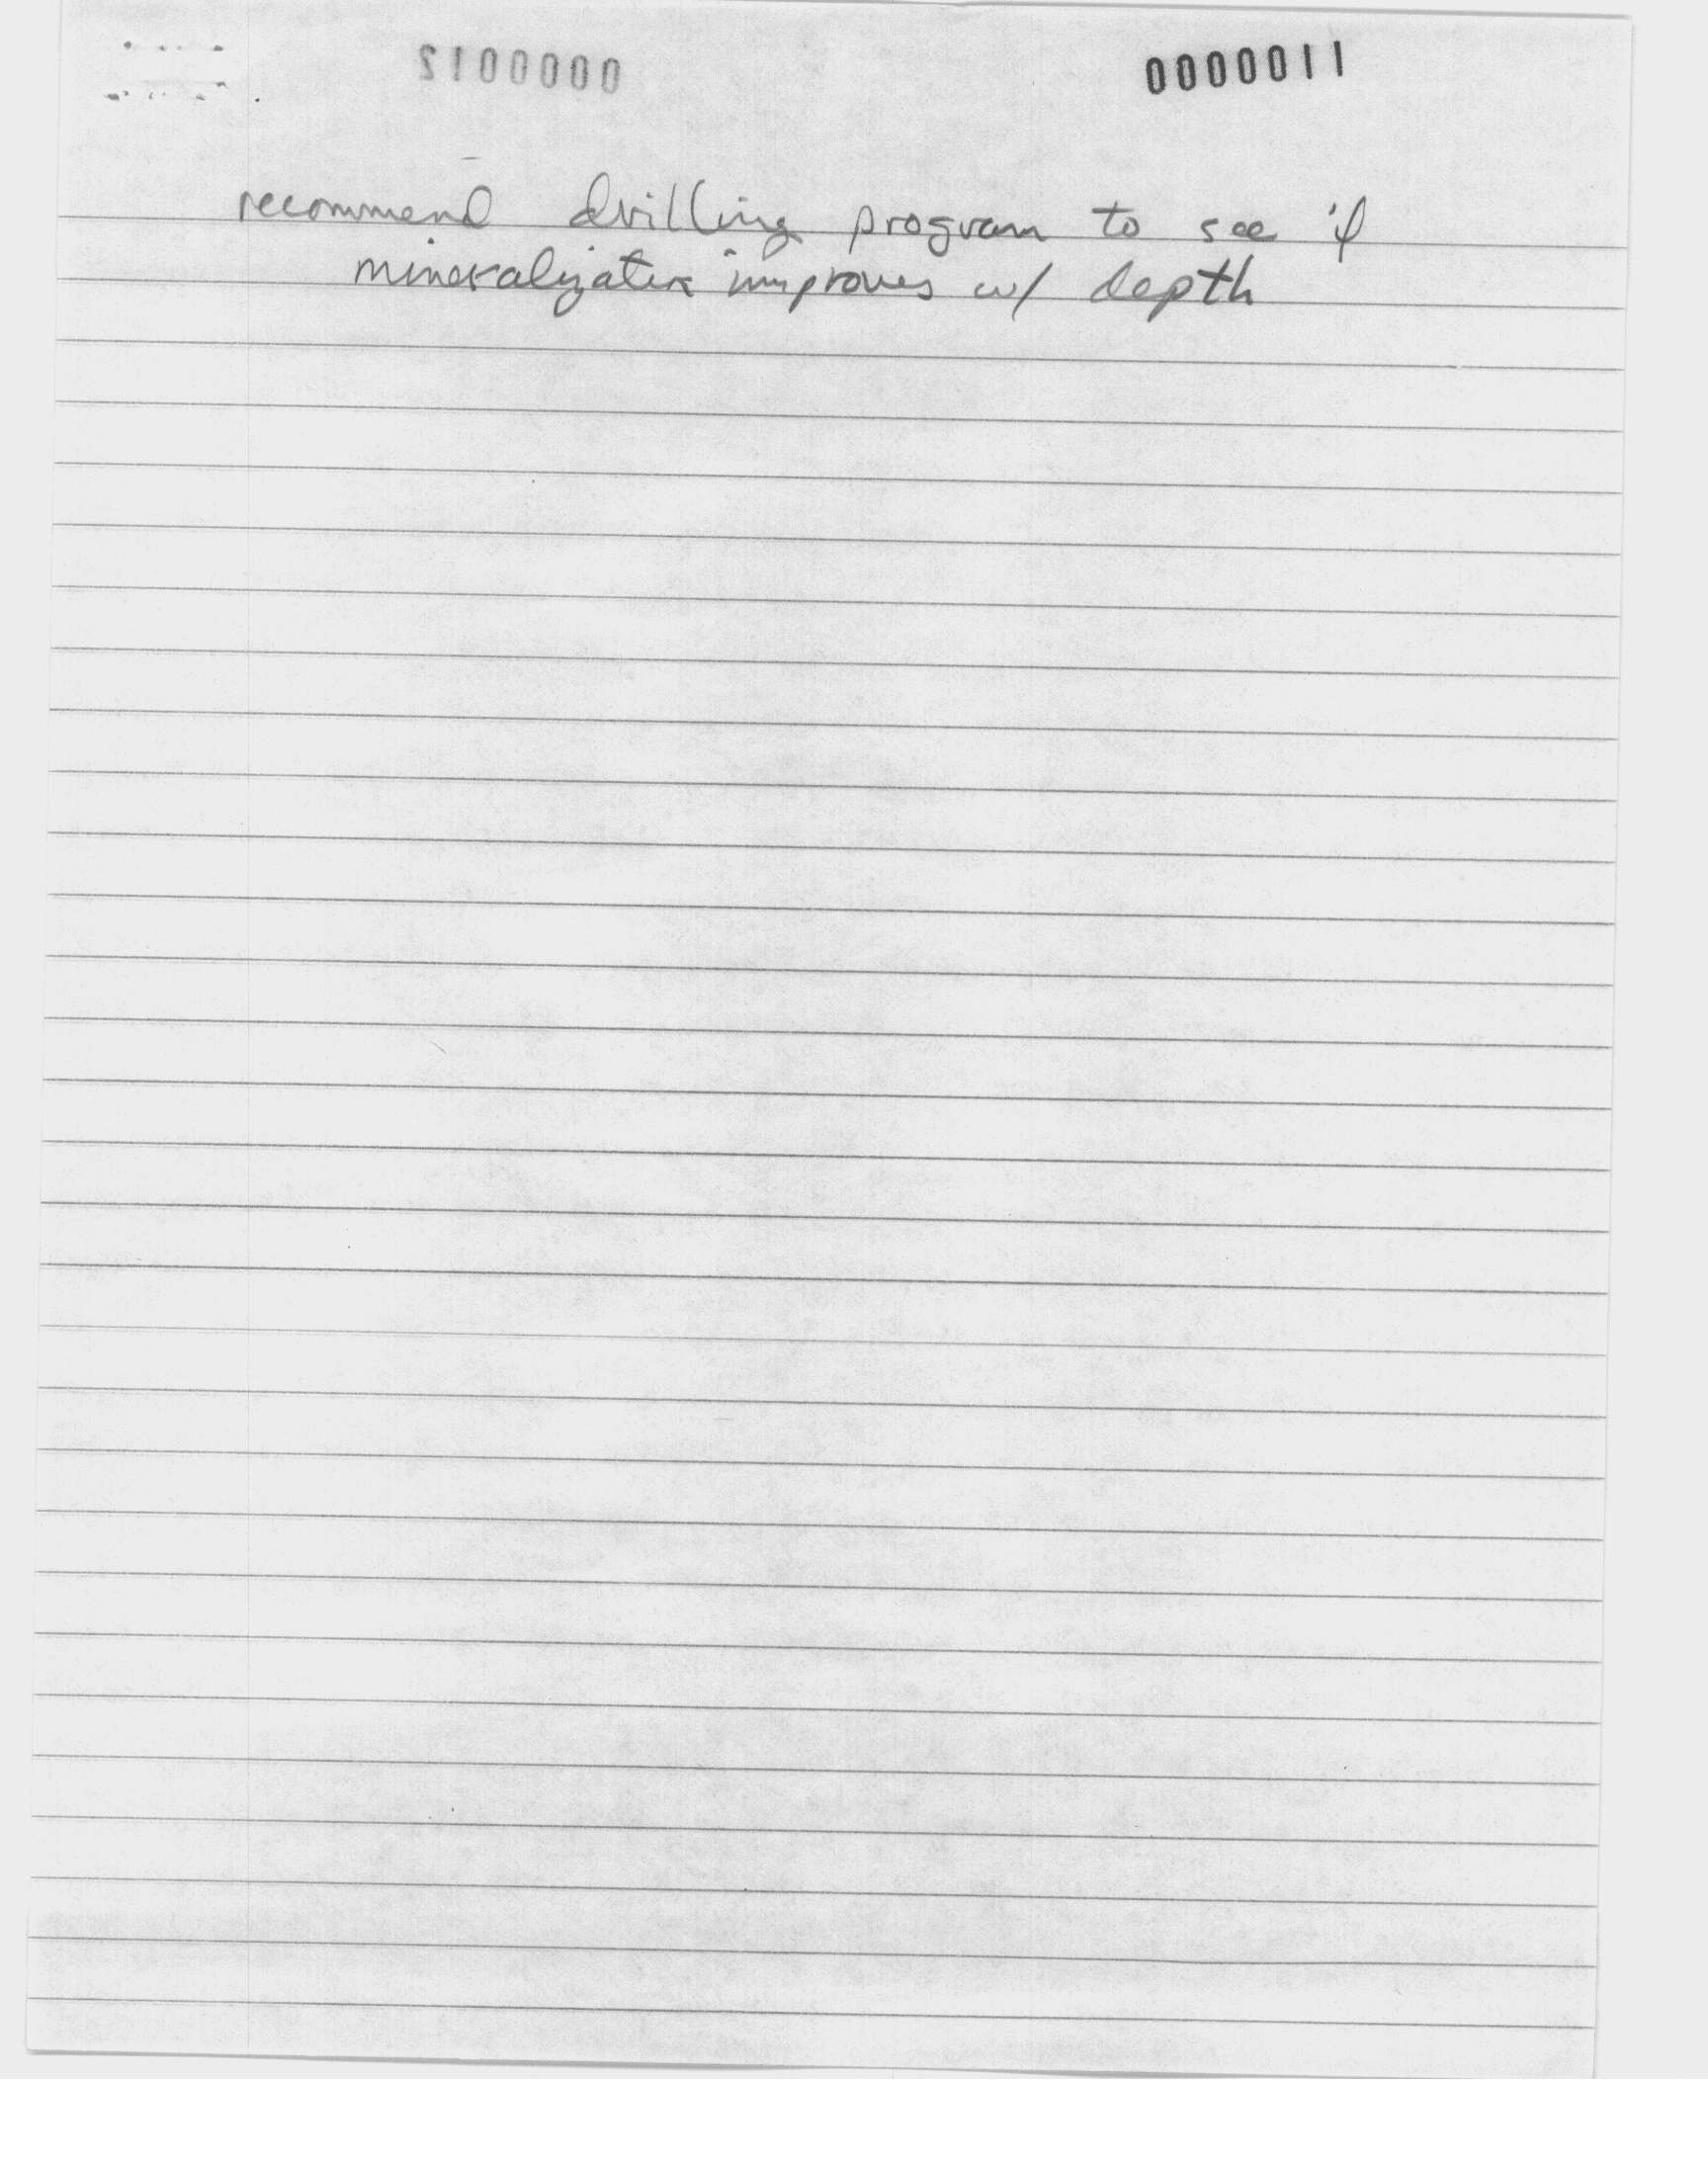 0000012 0000011
recommend drilling program to see if
mineralization improves w/ depth